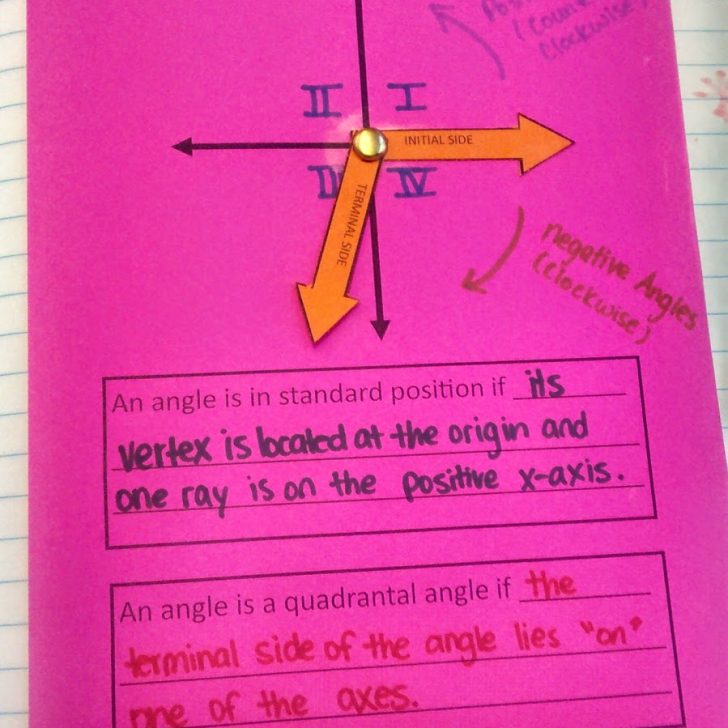 (Coun
Clockwise
II I
INITIAL SIDE
IV
TERMINAL SIDE
negative Angles
(clockwise)
An angle is in standard position if its
vertex is located at the origin and
one ray is on the positive x-axis.
An angle is a quadrantal angle if the
terminal side of the angle lies "on"
one of the axes.